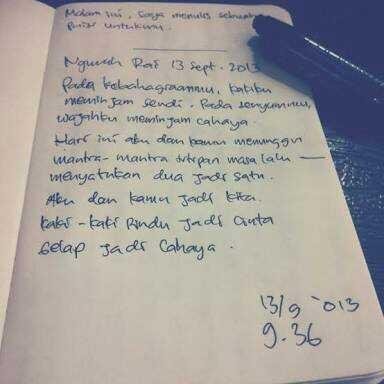 Malam ini, saya menulis sebuah
puisi untukmu.
Ngurah Rai 13 Sept. 2013
Pada kebahagiaanmu, hatiku
meminjam sendi. Pada senyummu,
wajahku meminjam cahaya.
Hari ini aku dan kamu menunggu
mantra-mantra titipan masa lalu —
menyatukan dua jadi satu.
Aku dan kamu jadi kita.
kaki-kaki Rindu jadi Cinta
Gelap jadi Cahaya.
13/9 '013
9.36